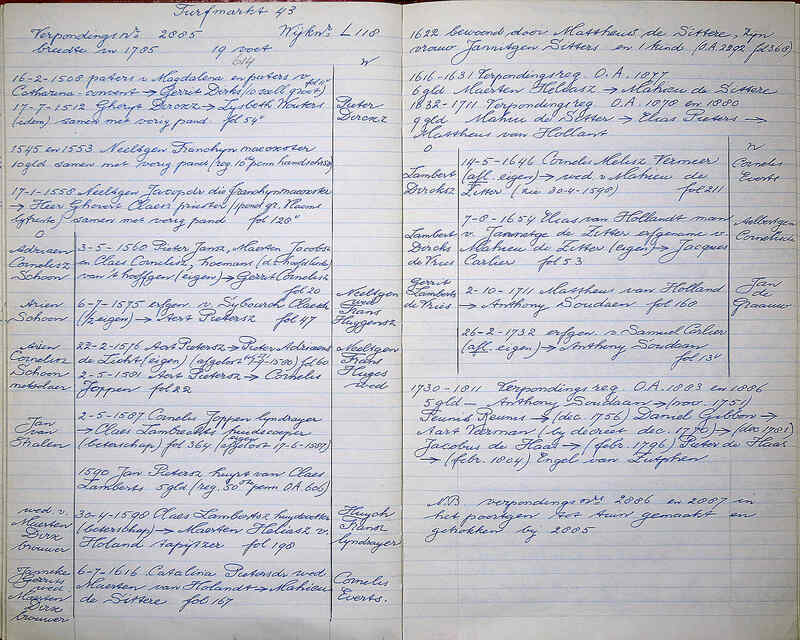 Turfmarkt 43
Verpondings nr. 2005 Wijk nr. L 118
breedte in 1785 19 voet
614
W
16-2-1508 paters v. Magdalena en paters v.
Catharina-convent → Gerrit Dirks
17-7-1512 Gheryt Dircxz → Lysbeth Wouters
(idem) samen met vorig pand. fol 54
Pieter
Dircxz
1545 en 1553 Neeltgen Franchyn
10 gld samen met vorig pand (reg. 10e penn
17-1-1558 Neeltgen Jacopdr die
→ Heer Ghovert Claesz priester (1 pond gr. Vlaams
lijfrente) samen met vorig pand fol 128
O
Adriaen
Cornelisz
Schoon
3-5-1560 Pieter Jansz, Maerten Jacobsz
en Claes Cornelisz,
van 't hoffgen (eigen) → Gerrit Cornelisz
fol 20
Arien
Schoon
6-7-1575 erfgen. v. Sybourch Claesdr
(½ eigen) → Aert Pietersz fol 47
Neeltgen
wed
Frans
Huygensz
Arien
Cornelisz
Schoon
metselaer
22-2-1576 Aert Pietersz → Pieter Adriaensz
de Licht (eigen) (afgelost 1580) fol 60
2-5-1581 Aert Pietersz → Cornelis
Joppen fol 22
Neeltgen
Frans
Huges
wed
Jan
van
Stralen
2-5-1587 Cornelis Joppen lyndrayer
→ Claes Lambrechtsz
(beterschap) fol 364 (eigen afgelost 17-6-1587)
1590 Jan Pietersz huyrt van Claes
Lamberts 5 gld (reg. 50ste penn OA 606)
wed v.
Maerten
Dirx
brouwer
30-4-1598 Claes Lambertsz
(beterschap) → Maerten Heliasz v.
Holand tapijtzer fol 198
Huych
Fransz
lyndrayer
Janneke
Gerrits
wed.
Maerten
Dirx
brouwer
6-7-1616 Catalina Pietersdr wed
Maerten van Holandt → Mahieu
de Sittere fol 167
Cornelis
Everts.
1622 bewoond door Mattheus de Sittere, zyn
vrouw Jannitgen Sitters en 1 kind (O.A. 2202 fol 368)
1616-1631 Verpondingsreg. O.A. 1877
6 gld Maerten Heliasz → Mahieu de Sittere
1632-1711 Verpondingsreg. O.A. 1878 en 1880
9 gld Mahieu de Sitter → Elias Pieters →
Mattheus van Hollant
O
W
Lambert
Dircksz
14-5-1646 Cornelis Melisz Vermeer
(afl. eigen) → wed v Mahieu de
Sitter (zie 30-4-1598) fol 211
Cornelis
Everts
Lambert
Dircks
de Vries
7-8-1654 Elias van Hollandt man
v. Jannetge de Sitter erfgename v.
Mahieu de Sitter (eigen) → Jacques
Carlier fol 53
Aelbertgen
Cornelisdr
Gerrit
Lamberts
de Vries
2-10-1711 Mattheus van Holland
→ Anthony Soudaen fol 160
Jan
de
Graauw
26-2-1732 erfgen. v. Samuel Carlier
(afl. eigen) → Anthony Soudaan
fol 13
1730-1811 Verpondingsreg. O.A. 1883 en 1886
5 gld — Anthony Soudaan → (nov. 1751)
Teunis Reunis → (dec. 1756) Daniel Gibbon →
Aart Verman (by decreet dec. 1770) → (dec 1781)
Jacobus de Haas → (febr. 1796) Pieter de Haas
→ (febr. 1804) Engel van Zutphen
NB verpondings nrs. 2006 en 2007 in
het poortgen tot tuin gemaakt en
getrokken bij 2005